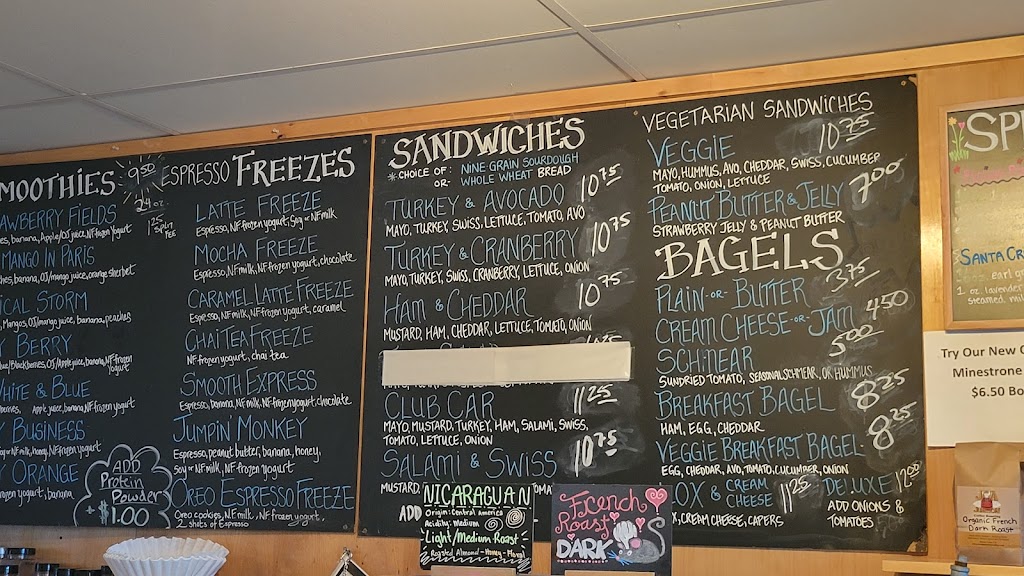 MOOTHIES 9.50
24 oz.
.75 SPLIT FEE
AWBERRY FIELDS
banana, Apple/OJ juice, NF frozen yogurt
MANGO IN PARIS
banana, OJ/mango juice, orange sherbet
ICAL STORM
Mangos, OJ/mango juice, banana, peaches
Y BERRY
Blackberries, OJ/Apple juice, banana, NF frozen
yogurt
WHITE & BLUE
Apple juice, banana, NF frozen yogurt
Y BUSINESS
or NF milk, honey, NF frozen yogurt
Y ORANGE
frozen yogurt, banana
ADD
Protein
Powder
+ $1.00
ESPRESSO FREEZES
LATTE FREEZE
Espresso, NF frozen yogurt, Soy or NF milk
MOCHA FREEZE
Espresso, NF milk, NF frozen yogurt, chocolate
CARAMEL LATTE FREEZE
Espresso, NF milk, NF frozen yogurt, caramel
CHAI TEA FREEZE
NF frozen yogurt, chai tea
SMOOTH EXPRESS
Espresso, banana, NF milk, NF frozen yogurt, chocolate
JUMPIN' MONKEY
Espresso, peanut butter, banana, honey,
Soy or NF milk, NF frozen yogurt
OREO ESPRESSO FREEZE
Oreo cookies, NF milk, NF frozen yogurt,
2 shots of Espresso
SANDWICHES
*CHOICE OF: NINE GRAIN SOURDOUGH
OR: WHOLE WHEAT BREAD
TURKEY & AVOCADO 10.75
MAYO, TURKEY, SWISS, LETTUCE, TOMATO, AVO
TURKEY & CRANBERRY 10.75
MAYO, TURKEY, SWISS, CRANBERRY, LETTUCE, ONION
HAM & CHEDDAR 10.75
MUSTARD, HAM, CHEDDAR, LETTUCE, TOMATO, ONION
CLUB CAR 11.25
MAYO, MUSTARD, TURKEY, HAM, SALAMI, SWISS,
TOMATO, LETTUCE, ONION
SALAMI & SWISS 10.75
MUSTARD,
ADD
VEGETARIAN SANDWICHES
VEGGIE 10.75
MAYO, HUMMUS, AVO, CHEDDAR, SWISS, CUCUMBER
TOMATO, ONION, LETTUCE
PEANUT BUTTER & JELLY 7.00
STRAWBERRY JELLY & PEANUT BUTTER
BAGELS
PLAIN -OR- BUTTER 3.75
CREAM CHEESE -OR- JAM 4.50
SCHMEAR 5.00
SUNDRIED TOMATO, SEASONAL SCHMEAR, OR HUMMUS
BREAKFAST BAGEL 8.25
HAM, EGG, CHEDDAR
VEGGIE BREAKFAST BAGEL 8.25
EGG, CHEDDAR, AVO, TOMATO, CUCUMBER, ONION
LOX & CREAM CHEESE 11.25
X, CREAM CHEESE, CAPERS
DELUXE 12.00
ADD ONIONS &
TOMATOES
NICARAGUAN
Origin: Central america
Acidity: Medium
Light/Medium Roast
Roasted Almond - Honey -
French
Roast
DARK
SP
SANTA CR
earl g
1 oz lavender
steamed mil
Try Our New
Minestrone
$6.50 Bo
Organic French
Dark Roast